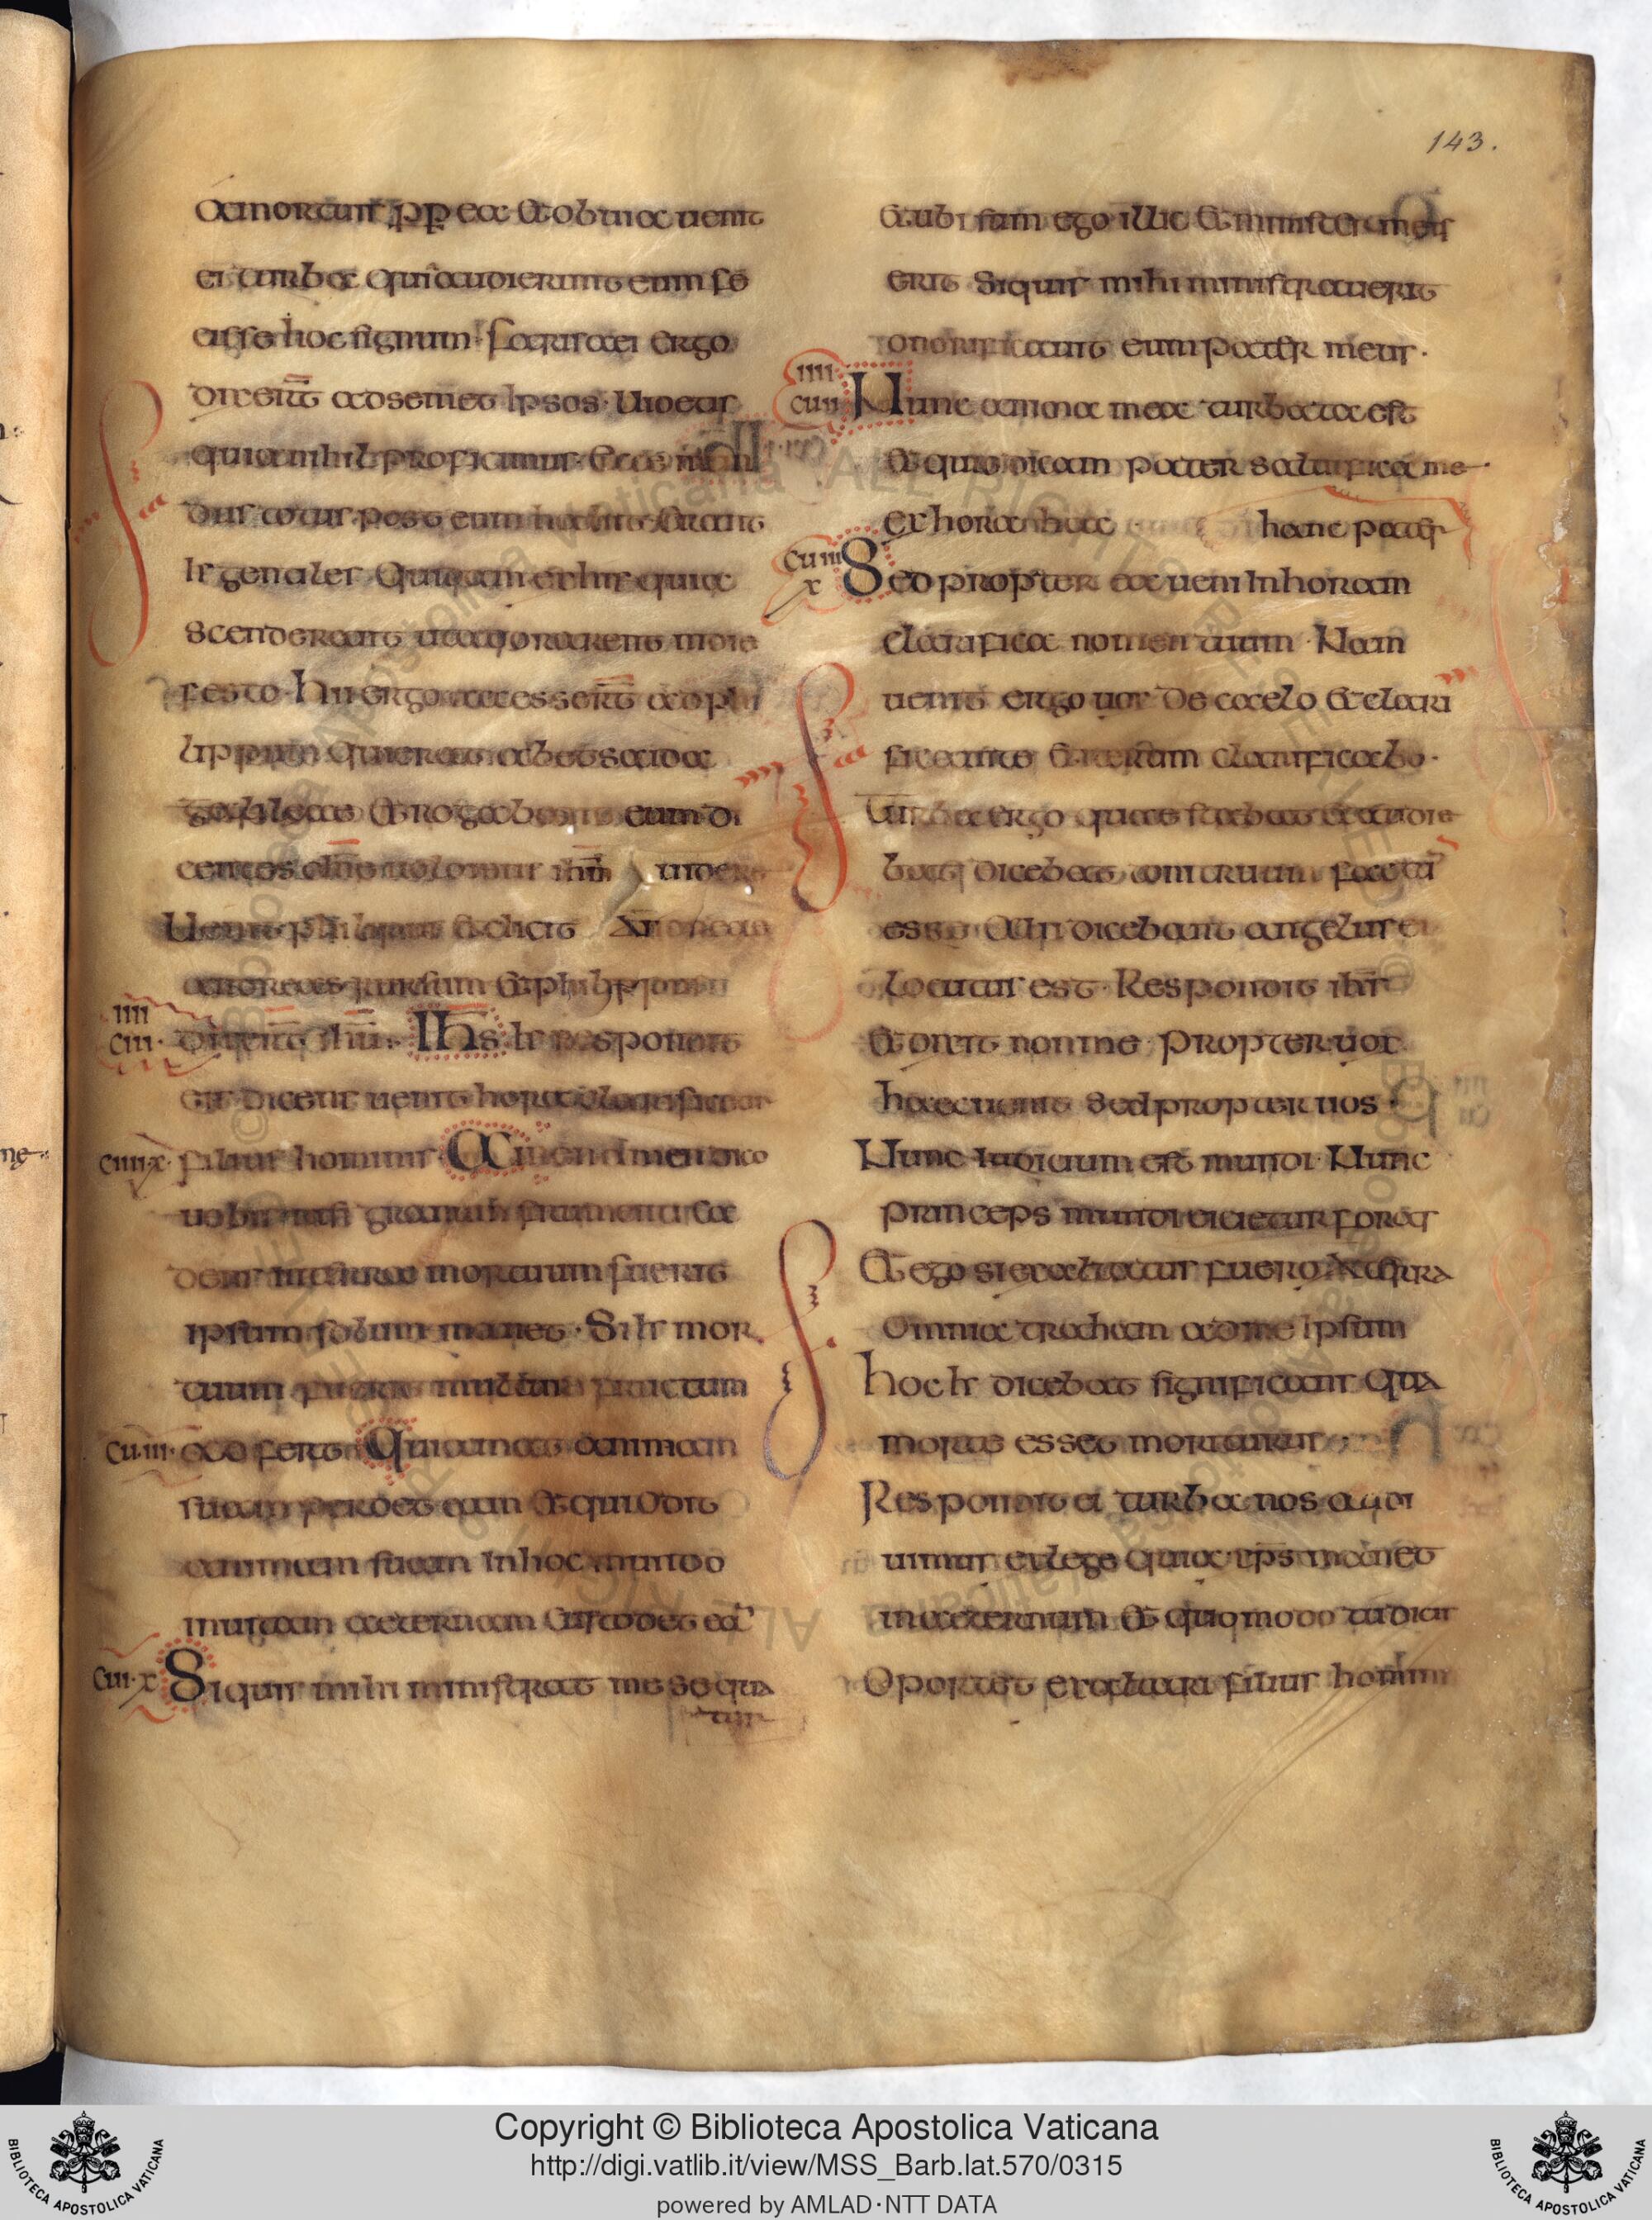 143.
a mortuis pp ea et obuia uenit
ei turba quia audierunt eum fe
cisse hoc signum farisaei ergo
dixert̄ ad semet ipsos Uidetis
quia nihil proficimus Ecce mun
dus totus post eum habiit Erant
h̄ gentiles Quidam ex his qui a
scenderant ut adorarent in die
festo hii ergo accessert̄ ad phi
lippum qui erat a betsaida
galileae et rogabant eum di
centes dn̄e uolumus ihm̄ uidere
Uenit philippus et dicit
andreas rursum et philippus
dixert̄ ihū
IIII
CIII
Ihs h̄ respondit
eis dicens uenit hora ut clarificetur
CIIII X
filius hominis Amen amen dico
uobis nisi granum frumenti ca
dens in terra mortuum fuerit
ipsum solum manet Si h̄ mor
tuum fuerit multum fructum
CU III
adfert Qui amat animam
suam perdet eam et qui odit
animam suam in hoc mundo
in uitam aeternam Custodet eā
CUI X
Siquis mihi ministrat me sequa
tur
et ubi sum ego illic et minister meus
erit Siquis mihi ministrauerit
onorificauit eum pater meus
IIII
CUII
Nunc anima mea turbata est
et quid dicam pater saluifica me
ex hora hac
hanc pater
CUIII
X
Sed propter ea ueni in horam
clarifica nomen tuum Nam
uenit ergo uox de caelo et clari
ficaui et iterum clarificabo
Turba ergo quae stabat et audie
bat dicebat tonitruum factū
esse Alii dicebant angelus ei
locutus est Respondit ihs̄
et dixit non me propter uox
haec uenit sed propter uos
Nunc iudicium est mundi Nunc
princeps mundi eicietur foras
Et ego si exaltatus fuero a terra
omnia traham ad me ipsum
hoc h̄ dicebat significans qua
morte esset moriturus
Respondit ei turba nos audi
uimus ex lege quia xps manet
in aeternum et quomodo tu dicis
Oportet exaltari filius homini
Copyright © Biblioteca Apostolica Vaticana
http://digi.vatlib.it/view/MSS_Barb.lat.570/0315
powered by AMLAD·NTT DATA
BIBLIOTECA APOSTOLICA VATICANA
BIBLIOTECA APOSTOLICA VATICANA